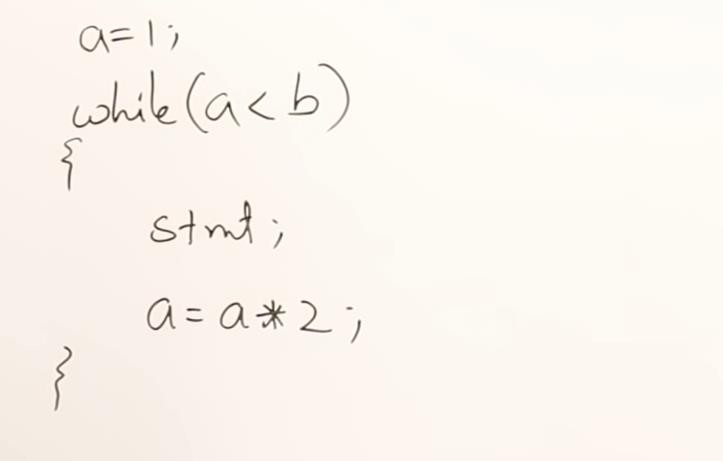 a=1;
while(a<b)
{
stmt;
a=a*2;
}